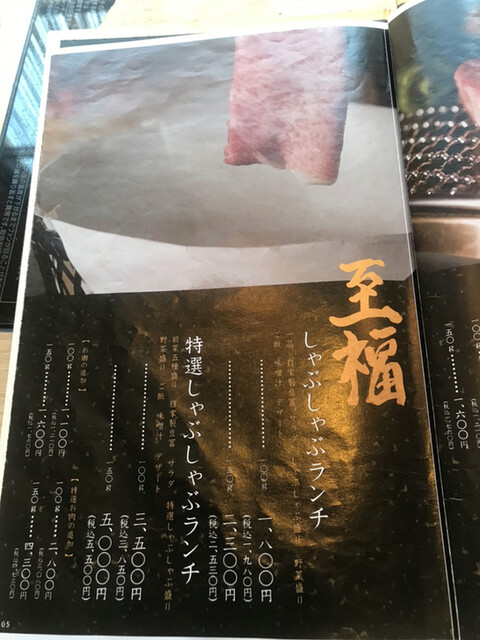 至福
しゃぶしゃぶランチ
一〇〇g
一、八〇〇円
(税込一、九八〇円)
一五〇g
二、三〇〇円
(税込二、五三〇円)
特選しゃぶしゃぶランチ
前菜五種盛り 自家製豆富 サラダ 特選しゃぶしゃぶ盛り
野菜盛り ご飯 味噌汁 デザート
一〇〇g
三、五〇〇円
(税込三、八五〇円)
一五〇g
五、〇〇〇円
(税込五、五〇〇円)
【お肉の追加】
一〇〇g……一、一〇〇円
(税込一、二一〇円)
一五〇g……一、六〇〇円
(税込一、七六〇円)
【特選お肉の追加】
一〇〇g……二、八〇〇円
(税込三、〇八〇円)
一五〇g……四、三〇〇円
(税込四、七三〇円)
05